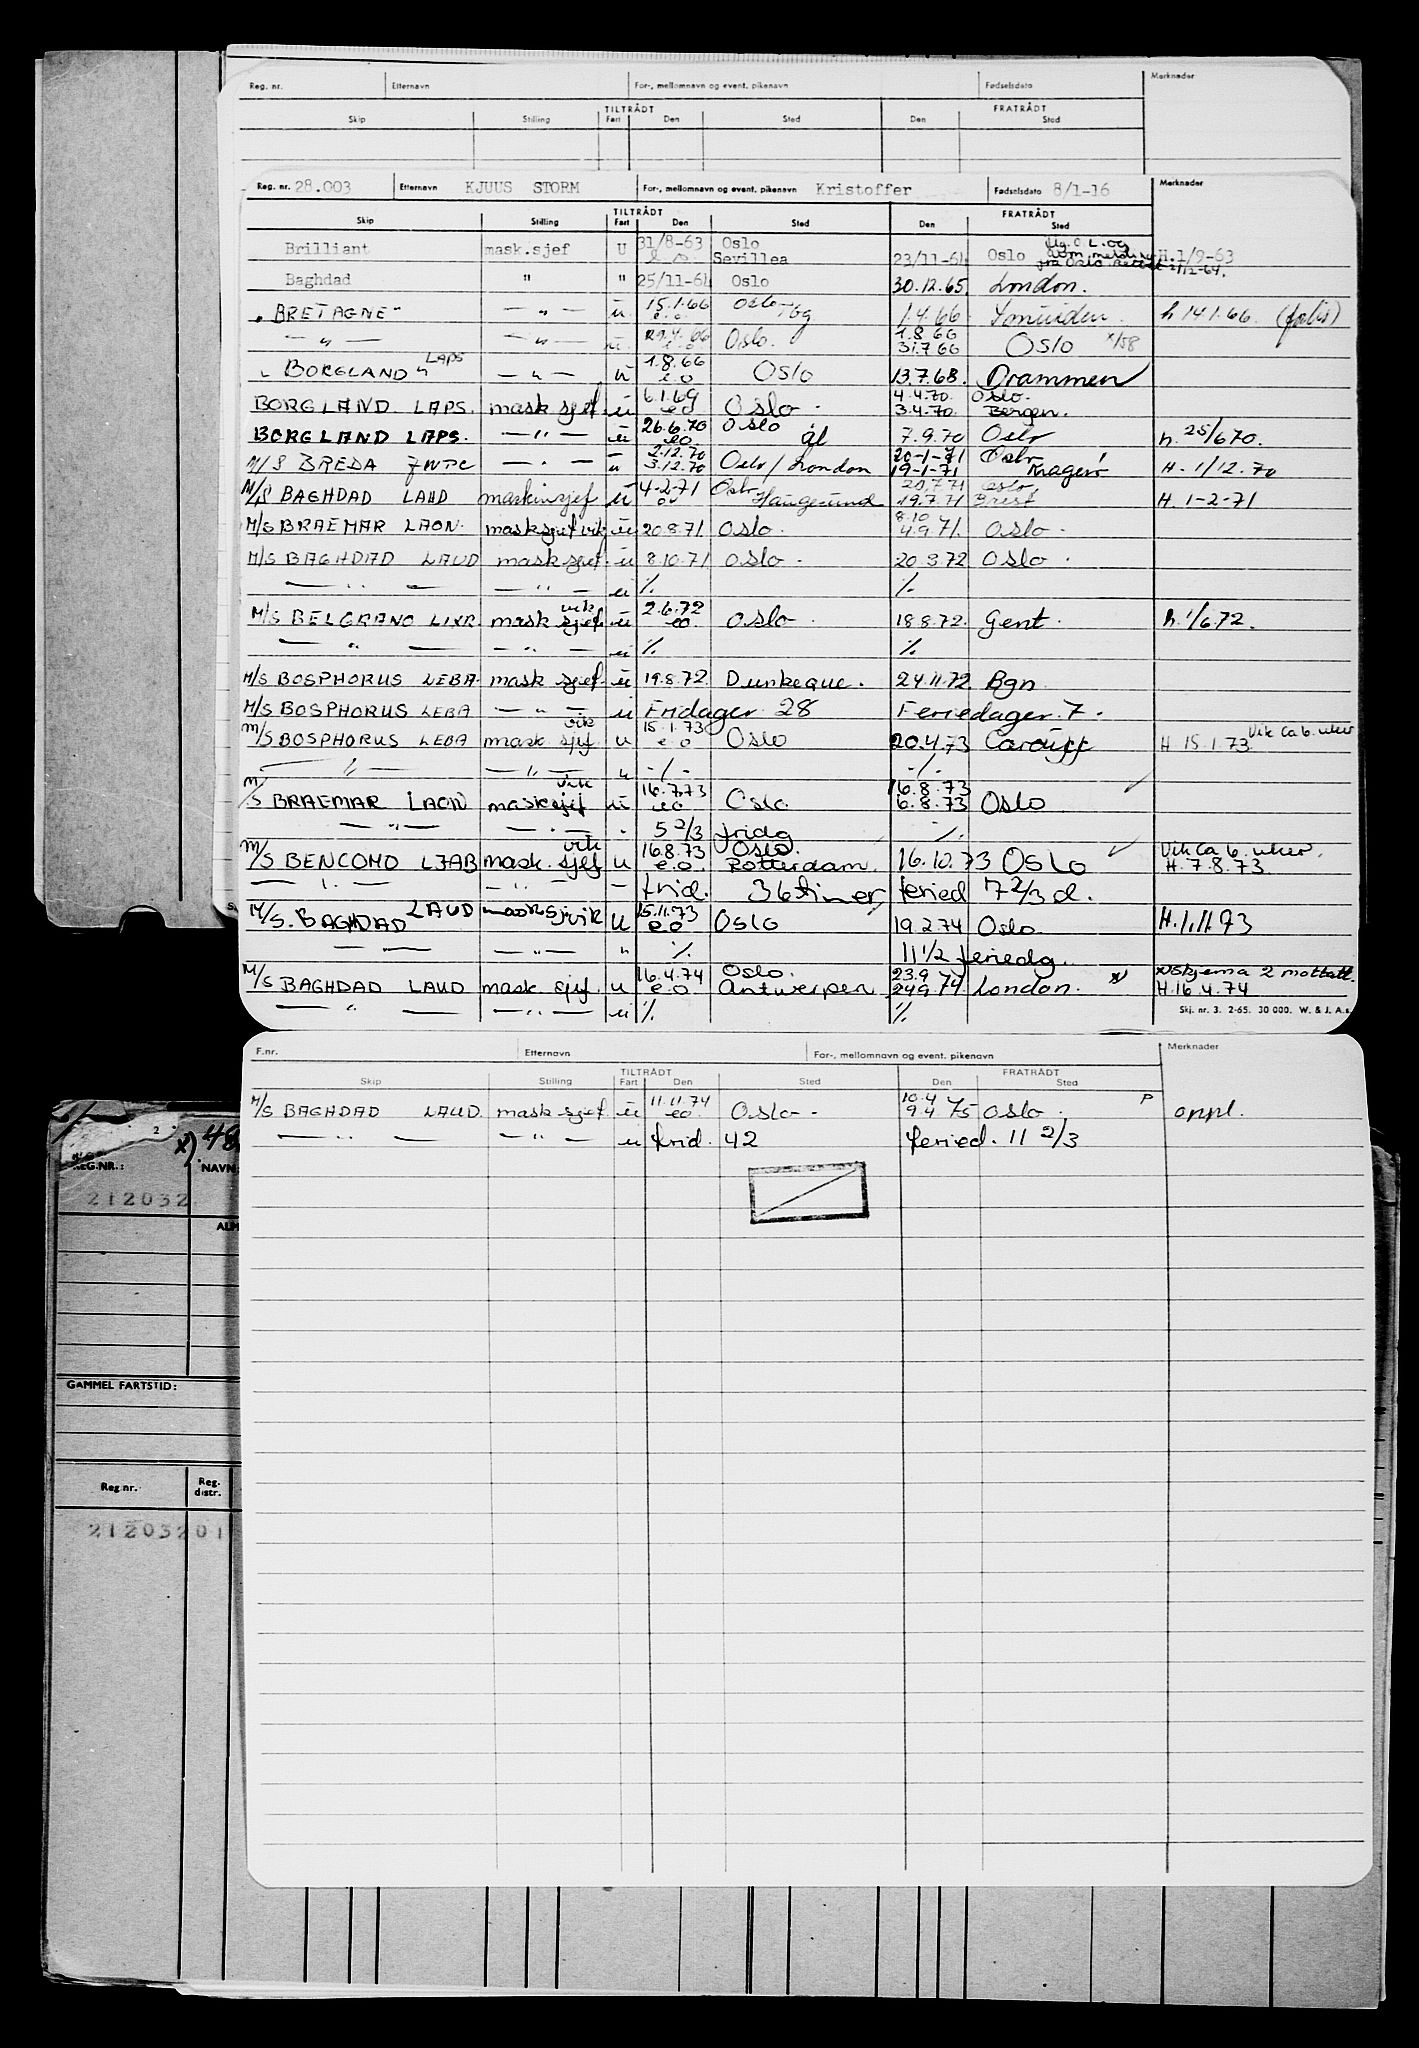 Reg. nr. Etternavn For-, mellomnavn og event. pikenavn Fødselsdato Merknader
TILTRÅDT FRATRÅDT
Skip Stilling Fart Den Sted Den Sted
Reg. nr. 28.003 Etternavn KJUUS STORM For-, mellomnavn og event. pikenavn Kristoffer Fødselsdato 8/1-16 Merknader
TILTRÅDT FRATRÅDT
Skip Stilling Fart Den Sted Den Sted
Brilliant mask.sjef U 31/8-63 Oslo Sevillea 23/11-64 Oslo H.1/9-63
Baghdad " " 25/11-64 Oslo 30.12.65. London.
"BRETAGNE" — " — ü 15.1.66 e.o Oslo 1.4.66 h 14.1.66.
— " — — " — ü 29.4.66 Oslo. 1.8.66 31.7.66 Oslo x/58
"BORGLAND" LAPS — " — ü 1.8.66 e.o Oslo 13.7.68. Drammen
BORGLAND LAPS. mask sjef ü 6.1.69 eo Oslo. 4.4.70. Oslo. 3.4.70. Bergen.
BORGLAND LAPS. — " — ü 26.6.70 eo Oslo ål 7.9.70 Oslo h. 25/6 70.
M/S BREDA JWTC — " — ü 2.12.70 3.12.70 Oslo / London 20-1-71 Oslo 19-1-71 Kragerø H. 1/12.70
M/S BAGHDAD LAUD maskinsjef ü 4-2-71 Oslo Haugesund 20.7.71 Oslo 19.7.71 Brest H. 1-2-71
M/S BRAEMAR LAON. masksjef vik ü 20.8.71. Oslo. 8.10 4.9.71. Oslo.
M/S BAGHDAD LAUD mask sjef. ü 8.10.71 Oslo. 20.3.72 Oslo.
— " — — " — ü % %
M/S BELGRANO LIXR. mask sjef. vik ü 2.6.72 eo Oslo. 18.8.72. Gent. h. 1/6.72.
— " — — " — ü % %
M/S BOSPHORUS LEBA. mask sjef. ü 19.8.72. Dunkeque. 24.11.72. Bgn.
M/S BOSPHORUS LEBA — " — ü Fridager 28 Feriedager. 7.
M/S BOSPHORUS LEBA mask. sjef vik u 15.1.73 e.o Oslo 20.4.73 Cardiff H 15.1.73 Vik ca 6. uker
— " — — " — " -/- -/-
M/S BRAEMAR LAON masksjef vik ü 16.7.73 eo Oslo. 16.8.73 6.8.73 Oslo
— " — — " — " 5 2/3 fridg %
M/S BENCOMO LJAB mask. sjef vik u 16.8.73 e.o. Oslo. Rotterdam. 16.10.73 Oslo Vik ca 6. uker. H.7.8.73
— " — — " — — frid. 36 timer feried 7 2/3 d.
M/S. BAGHDAD LAUD masksjvik u 15.11.73 e.o Oslo 19.2.74 Oslo. H.1.11.73
— " — " % 11 1/2 feriedg.
M/S BAGHDAD LAUD mask. sjef. u 16.4.74 e.o. Oslo. Antwerpen 23.9 24.9.74. London. x) x) Skjema 2 mottatt. H.16.4.74
— " — — " — ü % %
Skj. nr. 3. 2-65. 30 000. W. & J. A.s
F.nr. Etternavn For-, mellomnavn og event. pikenavn Merknader
TILTRÅDT FRATRÅDT
Skip Stilling Fart Den Sted Den Sted
M/S BAGHDAD LAUD. mask sjef. ü 11.11.74 eo Oslo - 10.4 9.4.75 Oslo. P oppl.
— " — — " — ü frid. 42 feried. 11 2/3
x) 48
REG.NR.: NAVN
212032
GAMMEL FARTSTID:
Reg.nr. Reg. distr.
21203201